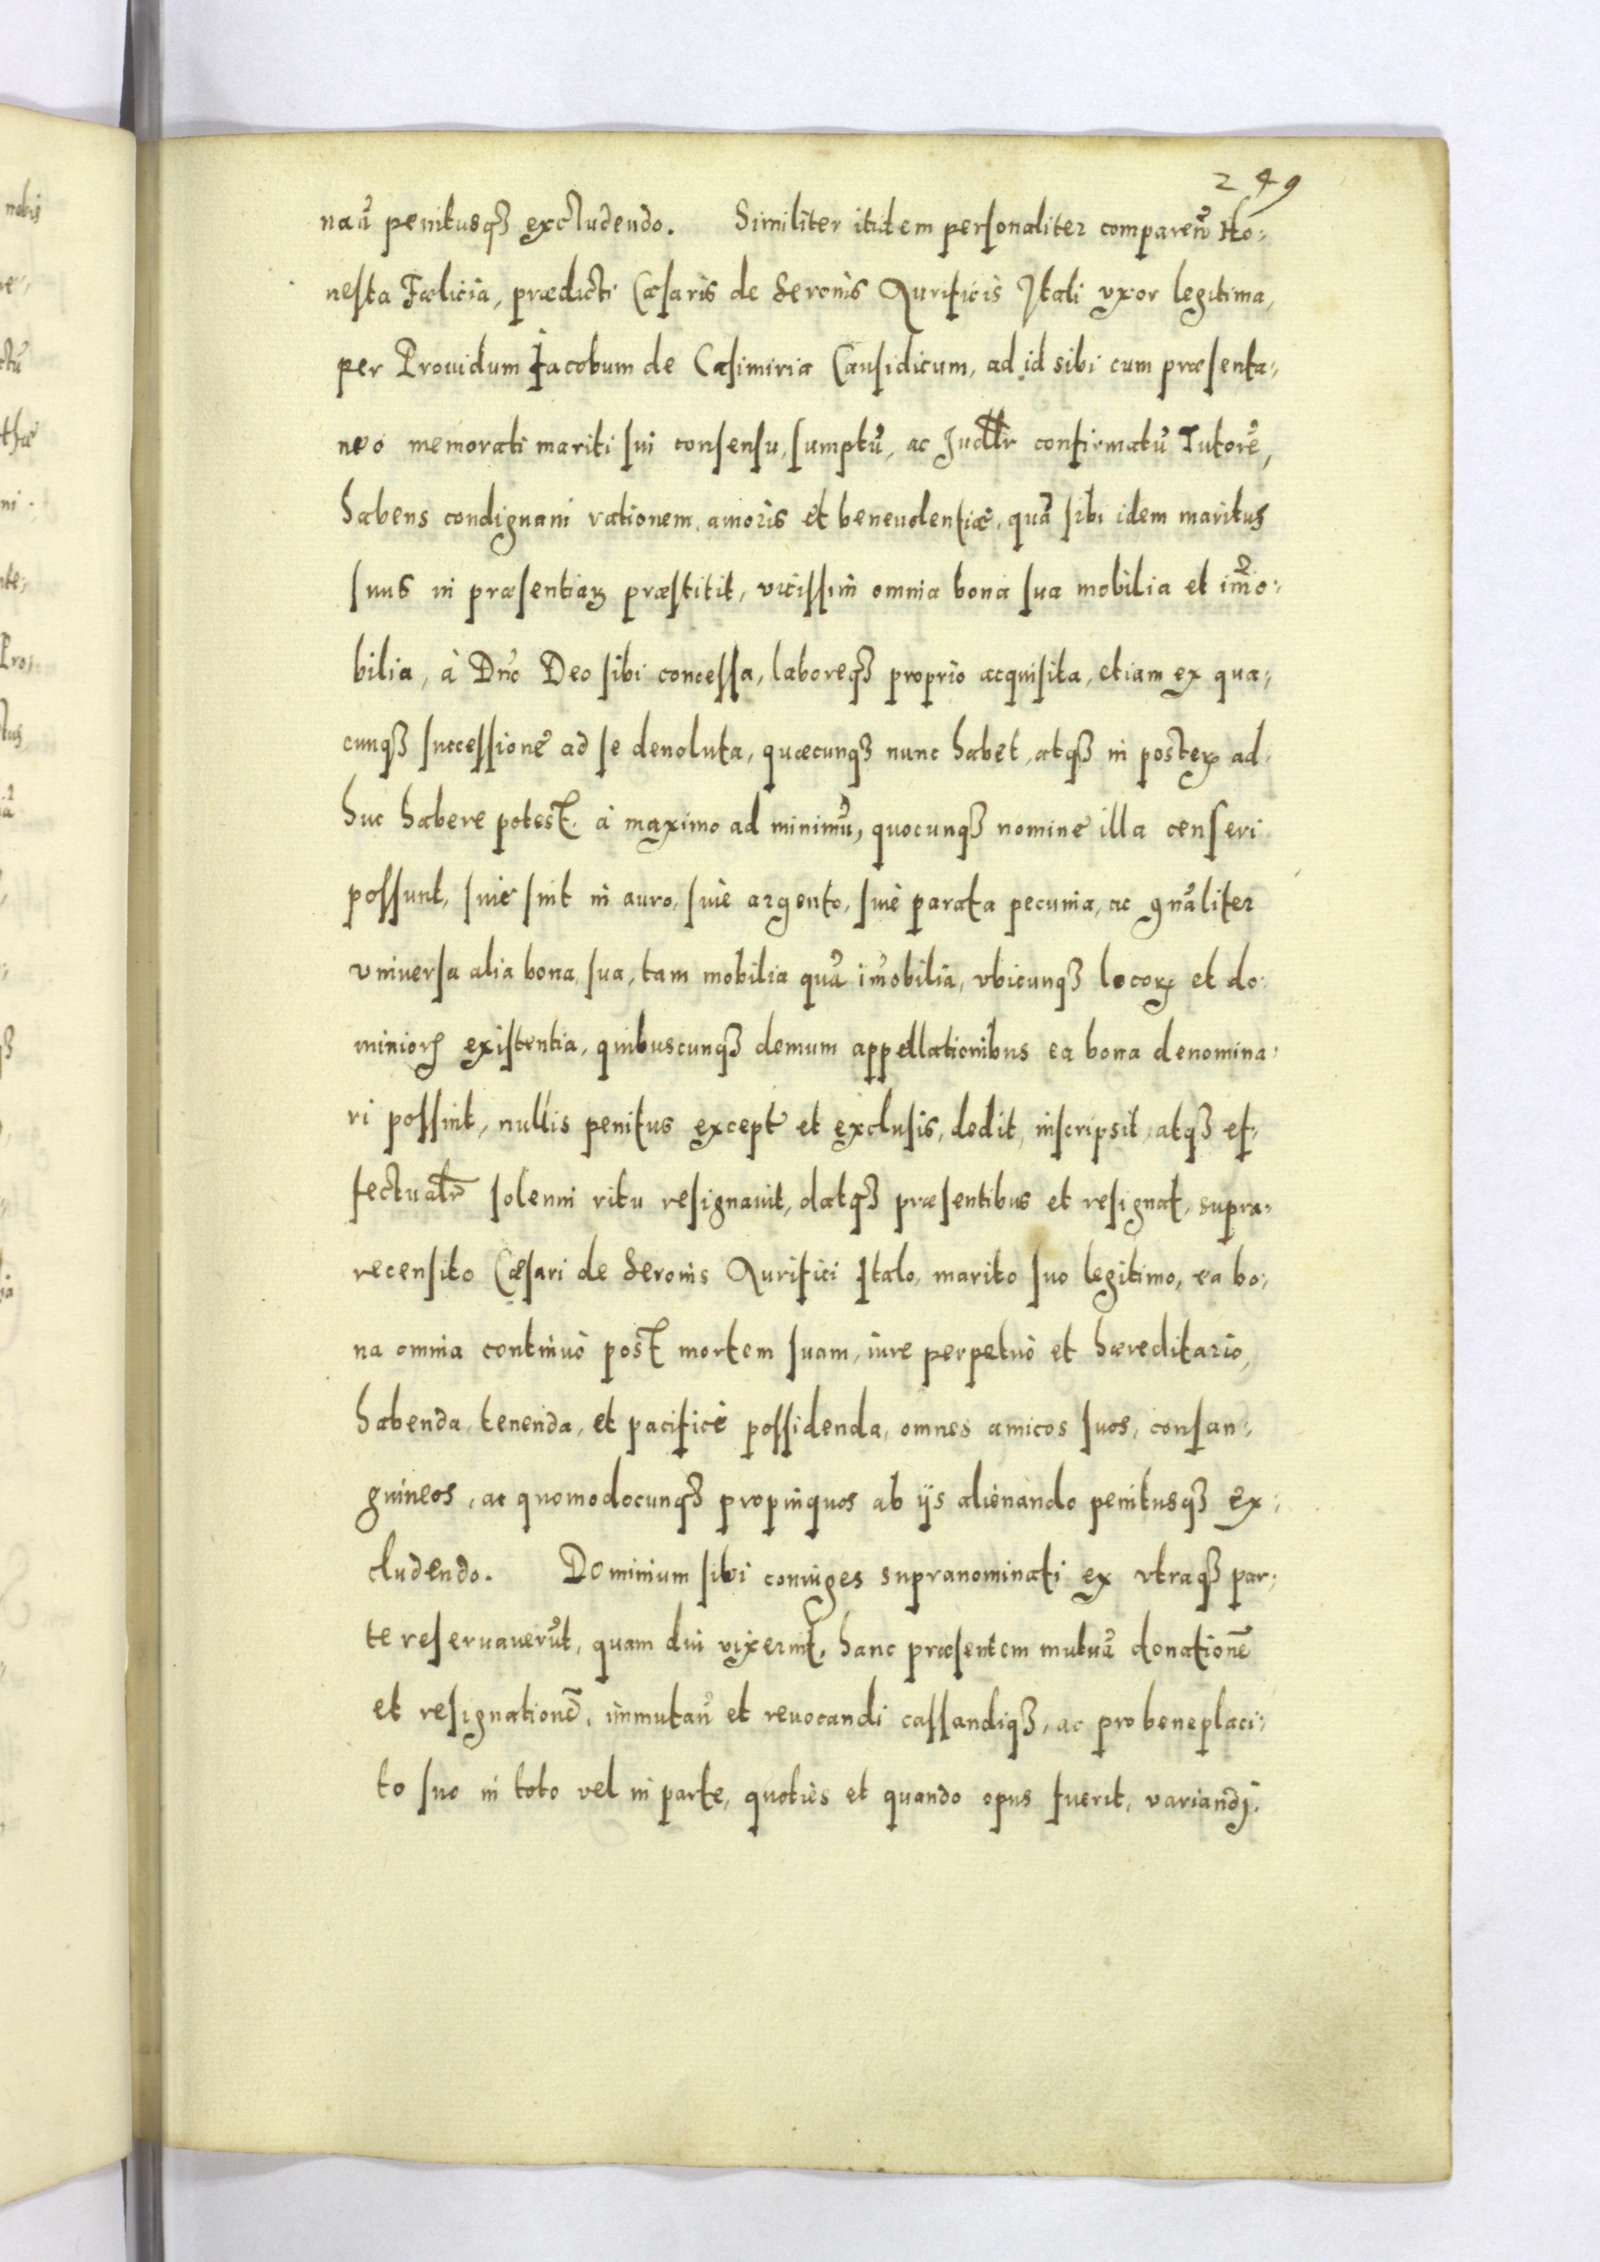 249
naũ penitusqȝ excludendo. Similiter itidem personaliter compareñ Ho-
nesta Fælicia, prædicti Cæsaris de Seronis Aurificis Itali vxor legitima,
per Prouidum Iacobum de Casimiria Causidicum, ad id sibi cum præsenta-
neo memorati mariti sui consensu, sumptũ, ac Judllr confirmatũ Tutorẽ,
habens condignam rationem amoris et beneuolentiæ, quã sibi idem maritus
suus in præsentiaꝝ præstitit, vicissim omnia bona sua mobilia et im̃o-
bilia, à Dño Deo sibi concessa, laboreqȝ proprio acquisita, etiam ex qua-
cunqȝ successione ad se deuoluta, quæcunqȝ nunc habet, atqȝ in posteꝝ ad-
huc habere potest. à maximo ad minimũ, quocunqȝ nomine illa censeri
possunt, siue sint in auro, siue argento, siue parata pecunia, ac gnãliter
vniuersa alia bona sua, tam mobilia quã im̃obilia, vbicunqȝ locoꝝ et do-
minioꝝ existentia, quibuscunqȝ demum appellationibus ea bona denomina-
ri possint, nullis penitus except et exclusis, dedit, inscripsit, atqȝ ef-
fectualr̃ solenni ritu resignauit, datqȝ præsentibus et resignat, supra-
recensito Cæsari de Seronis Aurifici Italo, marito suo legitimo, ea bo-
na omnia continuò post mortem suam, iure perpetuò et hæreditario,
habenda, tenenda, et pacificè possidenda, omnes amicos suos, consan-
guineos, ac quomodocunqȝ propinquos ab ijs alienando penitusqȝ ex-
cludendo. Dominium sibi coniuges supranominati ex vtraqȝ par-
te reseruauerũt, quam diu vixerint, hanc præsentem mutuã donationẽ
et resignationẽ, immutañ et reuocandi cassandiqȝ, ac pro beneplaci-
to suo in toto vel in parte, quoties et quando opus fuerit, variandi.